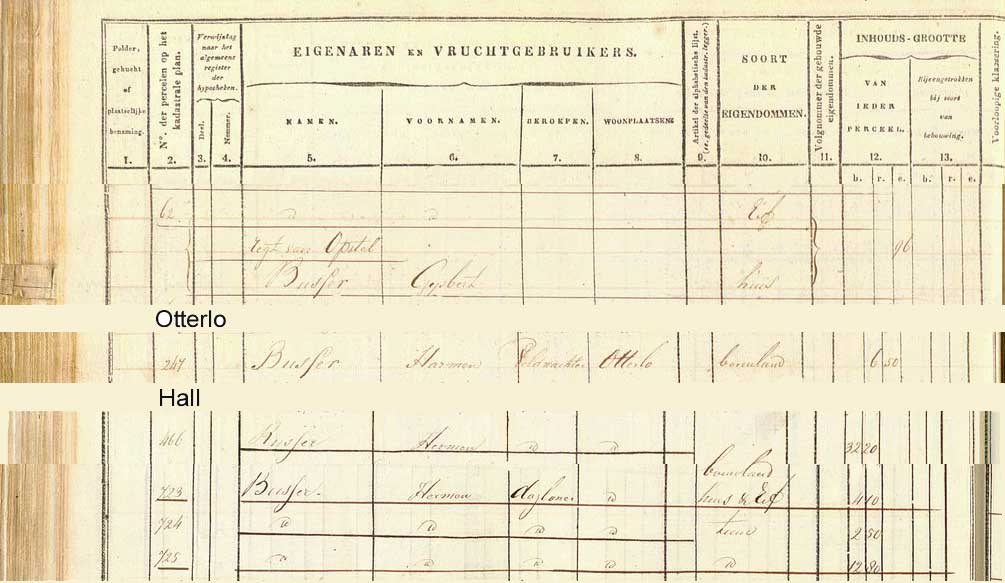 Polder, gehucht of plaatselijke benaming.
N°. der percelen op het kadastrale plan.
Verwijzing naar het algemeene register der hypotheken.
EIGENAREN EN VRUCHTGEBRUIKERS.
Artikel der alphabetische lijst.
SOORT DER EIGENDOMMEN.
Volgnommer der gebouwde eigendommen.
INHOUDS-GROOTTE
Voorloopige klassering.
Deel. Nommer. NAMEN. VOORNAMEN. BEROEPEN. WOONPLAATSEN VAN IEDER PERCEEL. Bijeengetrokken bij soort van bebouwing.
1. 2. 3. 4. 5. 6. 7. 8. 9. 10. 11. 12. 13.
b. r. e. b. r. e.
62 " " Erf
regt van Opstal 96
Busser Gysbert huis
Otterlo
247 Busser Harmen Veldwachter Otterlo bouwland 6 50
Hall
466 Busser Hermen " " 32 20
bouwland
723 Busser. Hermen dagloner " huis & Erf 4 10
724 " " " " tuin 2 50
725 " " " " 12 80